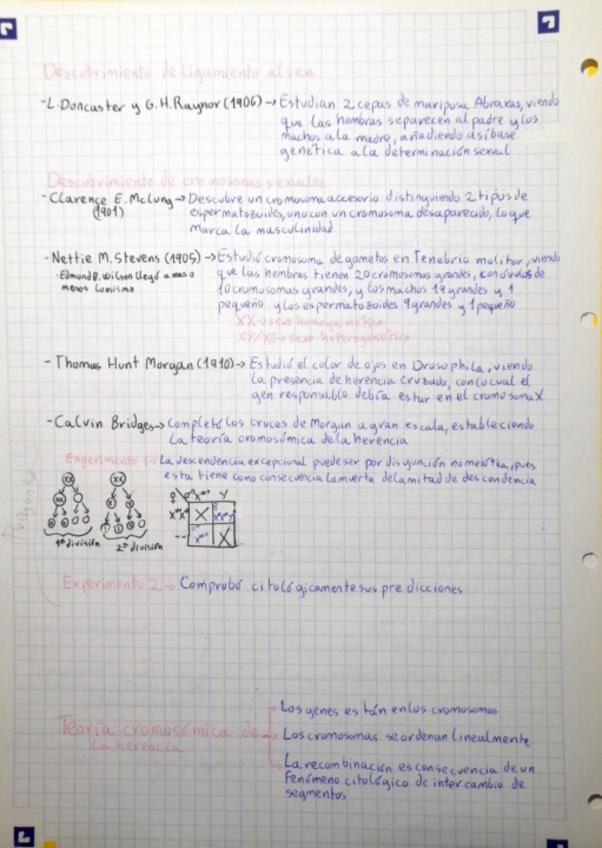 Descubrimiento de ligamiento al sexo
-L. Doncaster y G.H. Raynor (1906) → Estudian 2 cepas de mariposa Abraxas, viendo
que las hembras separecen al padre y los
machos a la madre, añadiendo así base
genética a la determinación sexual
Descubrimiento de cromosomas sexuales
- Clarence E. McClung → Descubre un cromosoma accesorio distinguiendo 2 tipos de
(1901) espermatozoides, uno con un cromosoma desaparecido, lo que
marca la masculinidad
- Nettie M. Stevens (1905) → Estudió cromosoma de gametos en Tenebrio molitor, viendo
·Edmund B. Wilson llegó a mas o que las hembras tienen 20 cromosomas grandes, con óvulos de
menos lo mismo 10 cromosomas grandes, y los machos 19 grandes y 1
pequeño y los espermatozoides 9 grandes y 1 pequeño
XX → sexo homogamético
XY/X0 → sexo heterogamético
- Thomas Hunt Morgan (1910) → Estudió el color de ojos en Drosophila, viendo
la presencia de herencia cruzada, con lo cual el
gen responsable debría estar en el cromosoma X
- Calvin Bridges → Completó los cruces de Morgan a gran escala, estableciendo
la teoría cromosómica de la herencia
Experimento 1 → La descendencia excepcional puede ser por disyunción no meiótica, pues
esta tiene como consecuencia la muerte de la mitad de descendencia
XX XX
♀ ♂ Y
X X
--
1ª división 2ª división
Experimento 2 → Comprobó citológicamente sus predicciones
Los genes están en los cromosomas
Teoría cromosómica de
la herencia
Los cromosomas se ordenan linealmente
La recombinación es consecuencia de un
fenómeno citológico de intercambio de
segmentos